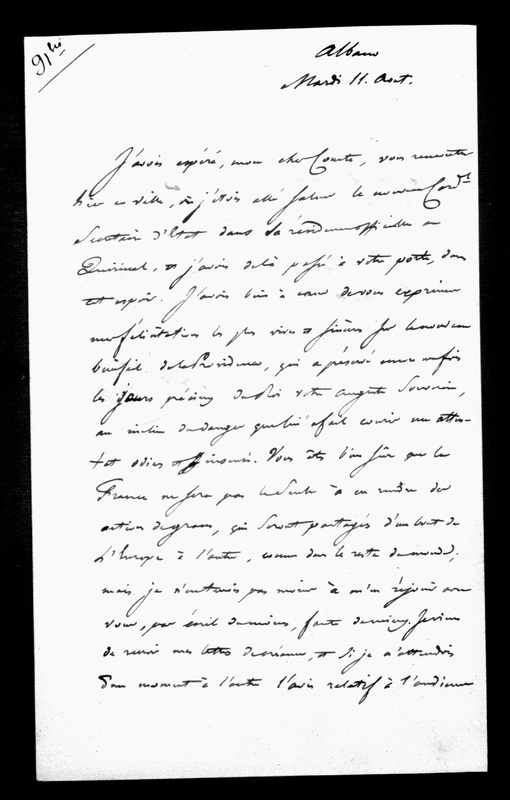 91 bis
Albano
Mardi 11. Aout.
J'avois espéré, mon cher Comte, vous rencontrer
hier en ville, où j'étois allé saluer le nouveau Card.al
Secrétaire d'Etat dans sa résidence officielle au
Quirinal, et j'avois delà passé à votre porte, dans
cet espoir. J'avois bien à coeur de vous exprimer
mes félicitations les plus vives et sincères sur le nouveau
bienfait de la Providence, qui a préservé encore une fois
les jours précieux du Roi votre auguste Souverain,
au milieu du danger que lui a fait courir un atten-
tat odieux et insensé. Vous êtes bien sûr que la
France ne sera pas la seule à en rendre des
actions de graces, qui seront partagées d'un bout de
L'Europe à l'autre, comme dans le reste du monde;
mais je n'entends pas moins à m'en réjouir avec
vous, par écrit du moins, faute de mieux. Je viens
de recevoir mes lettres de créance, et si je n'attendois
d'un moment à l'autre l'avis relatif à l'audience